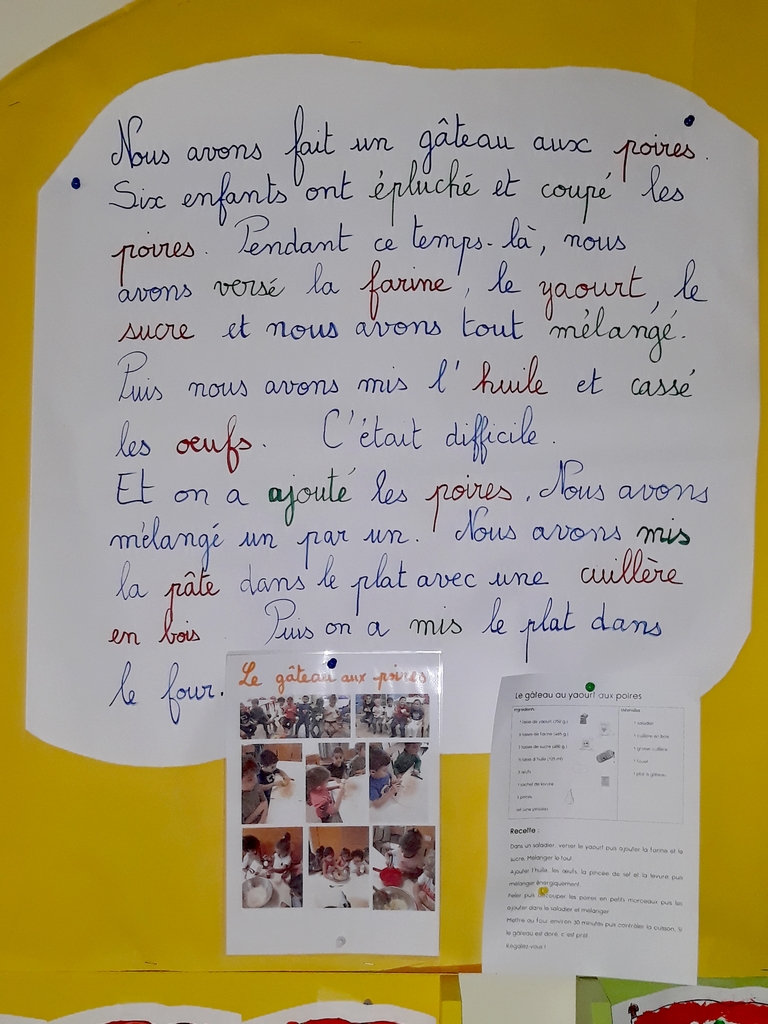 Nous avons fait un gâteau aux poires.
Six enfants ont épluché et coupé les
poires. Pendant ce temps-là, nous
avons versé la farine, le yaourt, le
sucre et nous avons tout mélangé.
Puis nous avons mis l'huile et cassé
les œufs. C'était difficile.
Et on a ajouté les poires. Nous avons
mélangé un par un. Nous avons mis
la pâte dans le plat avec une cuillère
en bois. Puis on a mis le plat dans
le four.
Le gâteau aux poires
Le gâteau au yaourt aux poires
Ingrédients
Ustensiles
1 saladier
1 cuillère en bois
1 fouet
1 plat à gâteau
Recette :
Dans un saladier, verser le yaourt puis ajouter la farine et le
sucre. Mélanger le tout.
Ajouter l'huile, les œufs, la pincée de sel et la levure puis
mélanger énergiquement.
Peler puis découper les poires en petits morceaux puis les
ajouter dans le saladier et mélanger.
Mettre au four environ 30 minutes puis contrôler la cuisson. Si
le gâteau est doré, c'est prêt.
Régalez-vous !